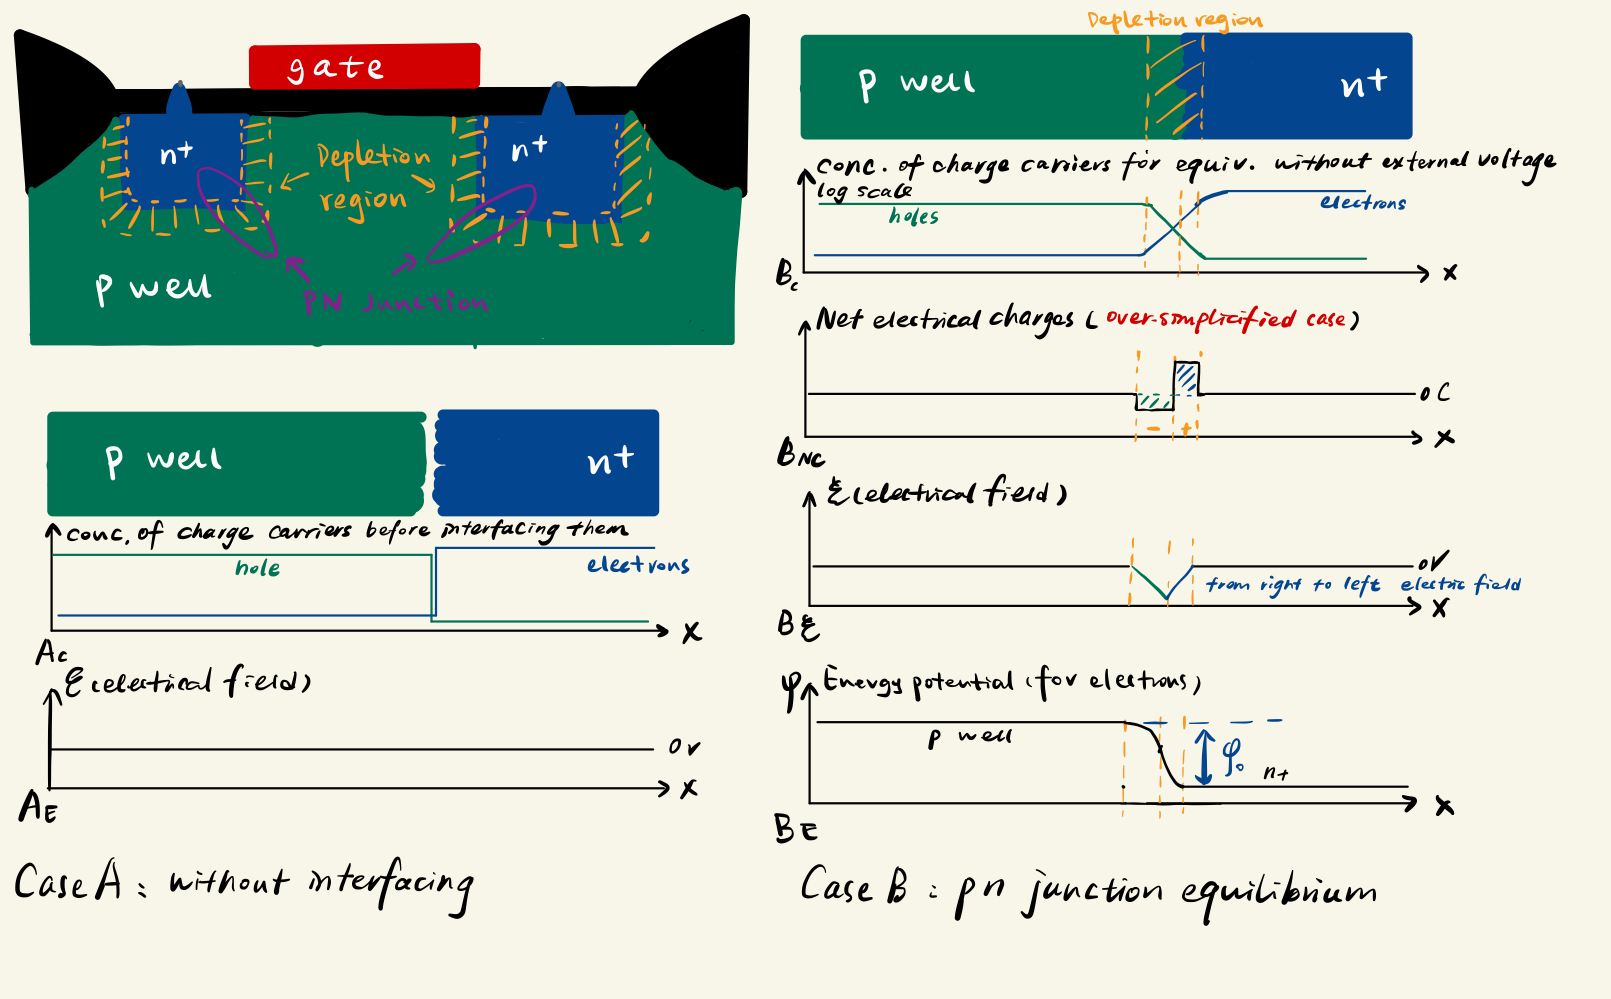 gate
n+
n+
Depletion
region
p well
PN Junction
p well
n+
conc. of charge carriers before interfacing them
hole
electrons
x
Ac
ξ(electrical field)
0 v
x
AE
Case A : without interfacing
Depletion region
p well
n+
conc. of charge carriers for equiv. without external voltage
log scale
holes
electrons
x
Bc
Net electrical charges (over-simplicified case)
0 C
- +
x
BNC
ξ(electrical field)
0V
from right to left electric field
x
Bξ
φ Energy potential (for electrons)
p well
φ₀
n+
x
BE
Case B : pn junction equilibrium